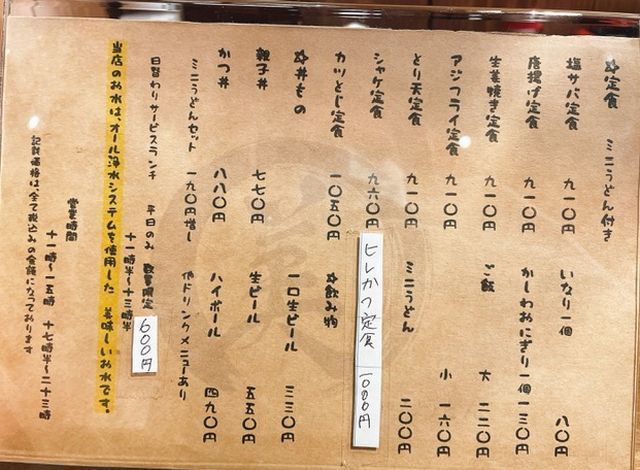 ☆定食 ミニうどん付き
塩サバ定食 九一〇円 いなり一個 八〇円
唐揚げ定食 九一〇円 かしわおにぎり一個 一三〇円
生姜焼き定食 九一〇円 ご飯 大 二二〇円
アジフライ定食 九一〇円 小 一六〇円
とり天定食 九一〇円 ミニうどん 二〇〇円
シャケ定食 九六〇円 ヒレかつ定食 1000円
カツとじ定食 一〇五〇円 ☆飲み物
☆丼もの 一口生ビール 三三〇円
親子丼 七七〇円 生ビール 五五〇円
かつ丼 八八〇円 ハイボール 四九〇円
ミニうどんセット 一九〇円増し 他ドリンクメニューあり
日替わりサービスランチ 平日のみ 数量限定 600円
十一時半～十三時半
当店のお水は、オール浄水システムを使用した 美味しいお水です。
営業時間
十一時～一五時 十七時半～二十三時
記載価格は全て税込みの金額になっております